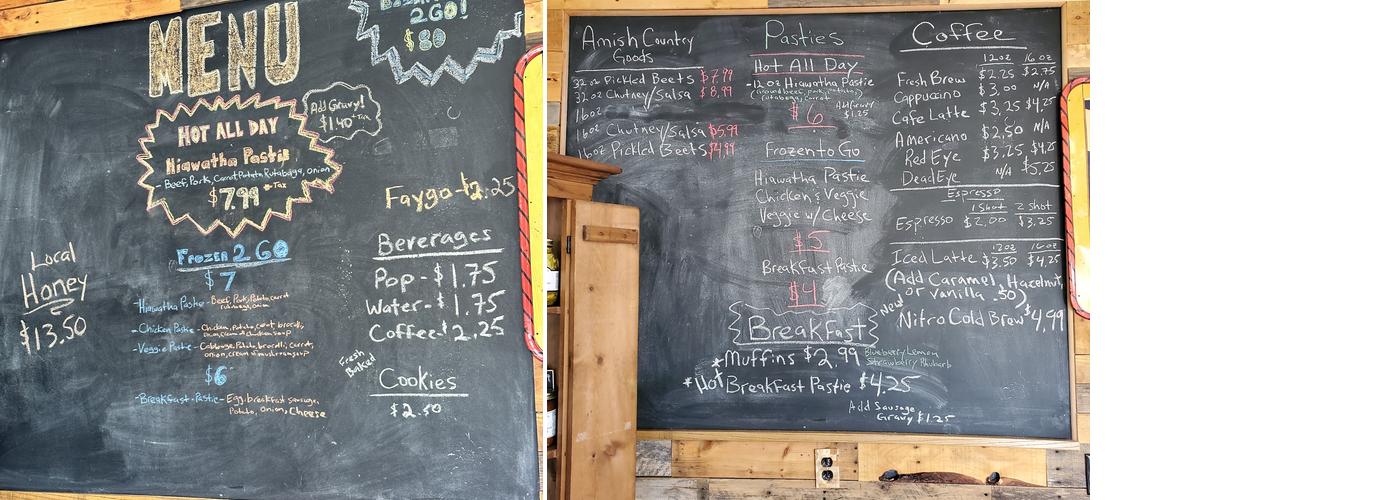 MENU
2GO!
$80
Add Gravy!
$1.40 + Tax
HOT ALL DAY
Hiawatha Pastie
- Beef, Pork, Carrot Potato Rutabaga, Onion
$7.99 + Tax
Faygo - $2.25
Local
Honey
$13.50
Frozen 2 GO
$7
- Hiawatha Pastie - Beef, Pork, Potato, carrot
rutabaga, onion
- Chicken Pastie - Chicken, Potato, carrot, brocolli,
onion, cream of chicken soup
- Veggie Pastie - Cabbage, Potato, brocolli, carrot,
onion, cream of mushroom soup
$6
- Breakfast - Pastie - Egg, breakfast sausage,
Potato, Onion, Cheese
Beverages
Pop - $1.75
Water - $1.75
Coffee - $2.25
Fresh
Baked
Cookies
$2.50
Amish Country
Goods
32 oz Pickled Beets $7.99
32 oz Chutney/Salsa $8.99
16 oz
16 oz Chutney/Salsa $5.99
16 oz Pickled Beets $4.99
Pasties
Hot All Day
- 12 oz Hiawatha Pastie
(ground beef, pork, potato,
rutabaga, carrot
Add Gravy
$1.25
$6
Frozen to Go
Hiawatha Pastie
Chicken & Veggie
Veggie w/ Cheese
$5
Breakfast Pastie
$4
Breakfast
*Muffins $2.99 Blueberry Lemon
Strawberry Rhubarb
*Hot Breakfast Pastie $4.25
Add Sausage
Gravy $1.25
Coffee
12oz 16 oz
Fresh Brew $2.25 $2.75
Cappuccino $3.00 N/A
Cafe Latte $3.25 $4.25
Americano $2.50 N/A
Red Eye $3.25 $4.25
Dead Eye N/A $5.25
Espresso
1 Shot 2 Shot
Espresso $2.00 $3.25
12oz 16oz
Iced Latte $3.50 $4.25
(Add Caramel, Hazelnut,
or Vanilla .50)
New
Nitro Cold Brew $4.99